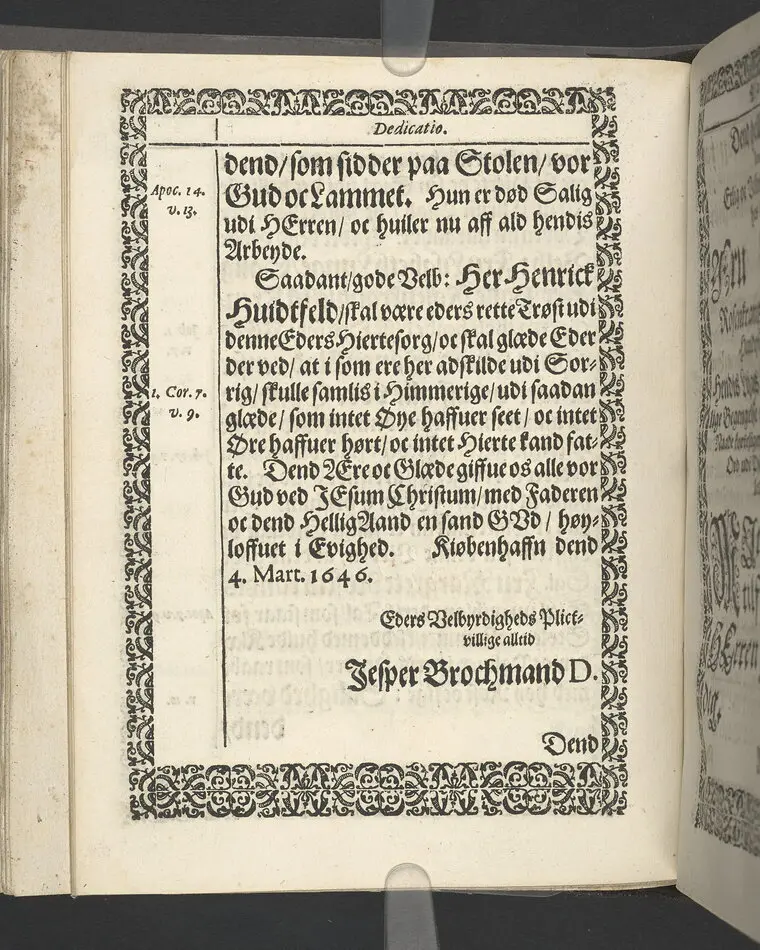 Dedicatio.
dend/ som sidder paa Stolen/ vor
Apoc. 14.
v. 13.
Gud oc Lammet. Hun er død Salig
udi HErren/ oc huiler nu aff ald hendis
Arbeyde.
Saadant/ gode Velb: Her Henrick
Huidtfeld/ skal være eders rette Trøst udi
denne Eders Hiertesorg/ oc skal glæde Eder
der ved/ at i som ere her adskilde udi Sor-
1. Cor. 7.
v. 9.
rig/ skulle samlis i Himmerige/ udi saadan
glæde/ som intet Øye haffuer seet/ oc intet
Øre haffuer hørt/ oc intet Hierte kand fat-
te. Dend ÆRe oc Glæde giffue os alle vor
Gud ved JEsum Christum/ med Faderen
oc dend Hellig Aand en sand GVd/ høy-
loffuet i Evighed. Kiøbenhaffn dend
4. Mart. 1646.
Eders Velbyrdigheds Plict-
villige alltid
Jesper Brochmand D.
Dend